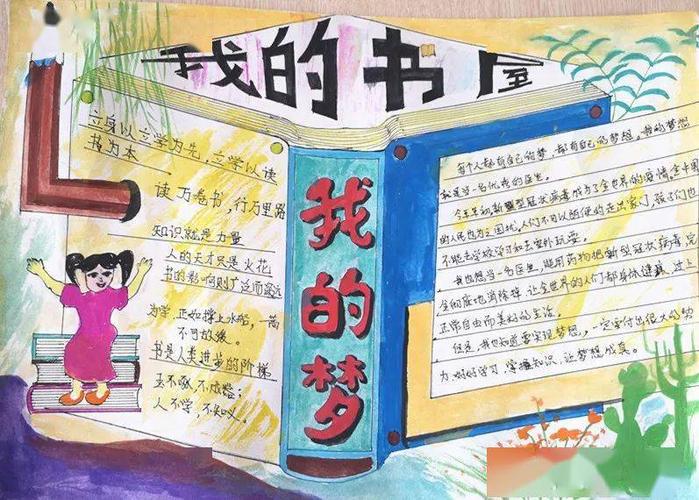 我的书屋
立身以立学为先,立学以读
书为本
读万卷书,行万里路
知识就是力量
人的天才只是火花
书的影响则广泛而深远
为学,正如撑上水船,一篙
不可放缓。
书是人类进步的阶梯
玉不啄,不成器;
人不学,不知义。
我的梦
每个人都有自己的梦,都有自己的梦想,我的梦想
就是当一名优秀的医生。
今年年初新型冠状病毒成为了全世界的疫情,全中国
的人民也为之困扰,人们不可以随便的走出家门,孩子们
不能去学校学习和去室外玩耍。
我也想当一名医生,能用药物把新型冠状病毒完
全彻底地消除掉,让全世界的人们都身体健康,过上
正常自由而美好的生活。
但是,我也知道要实现梦想,一定要付出很大的努
力,好好学习,掌握知识,让梦想成真。